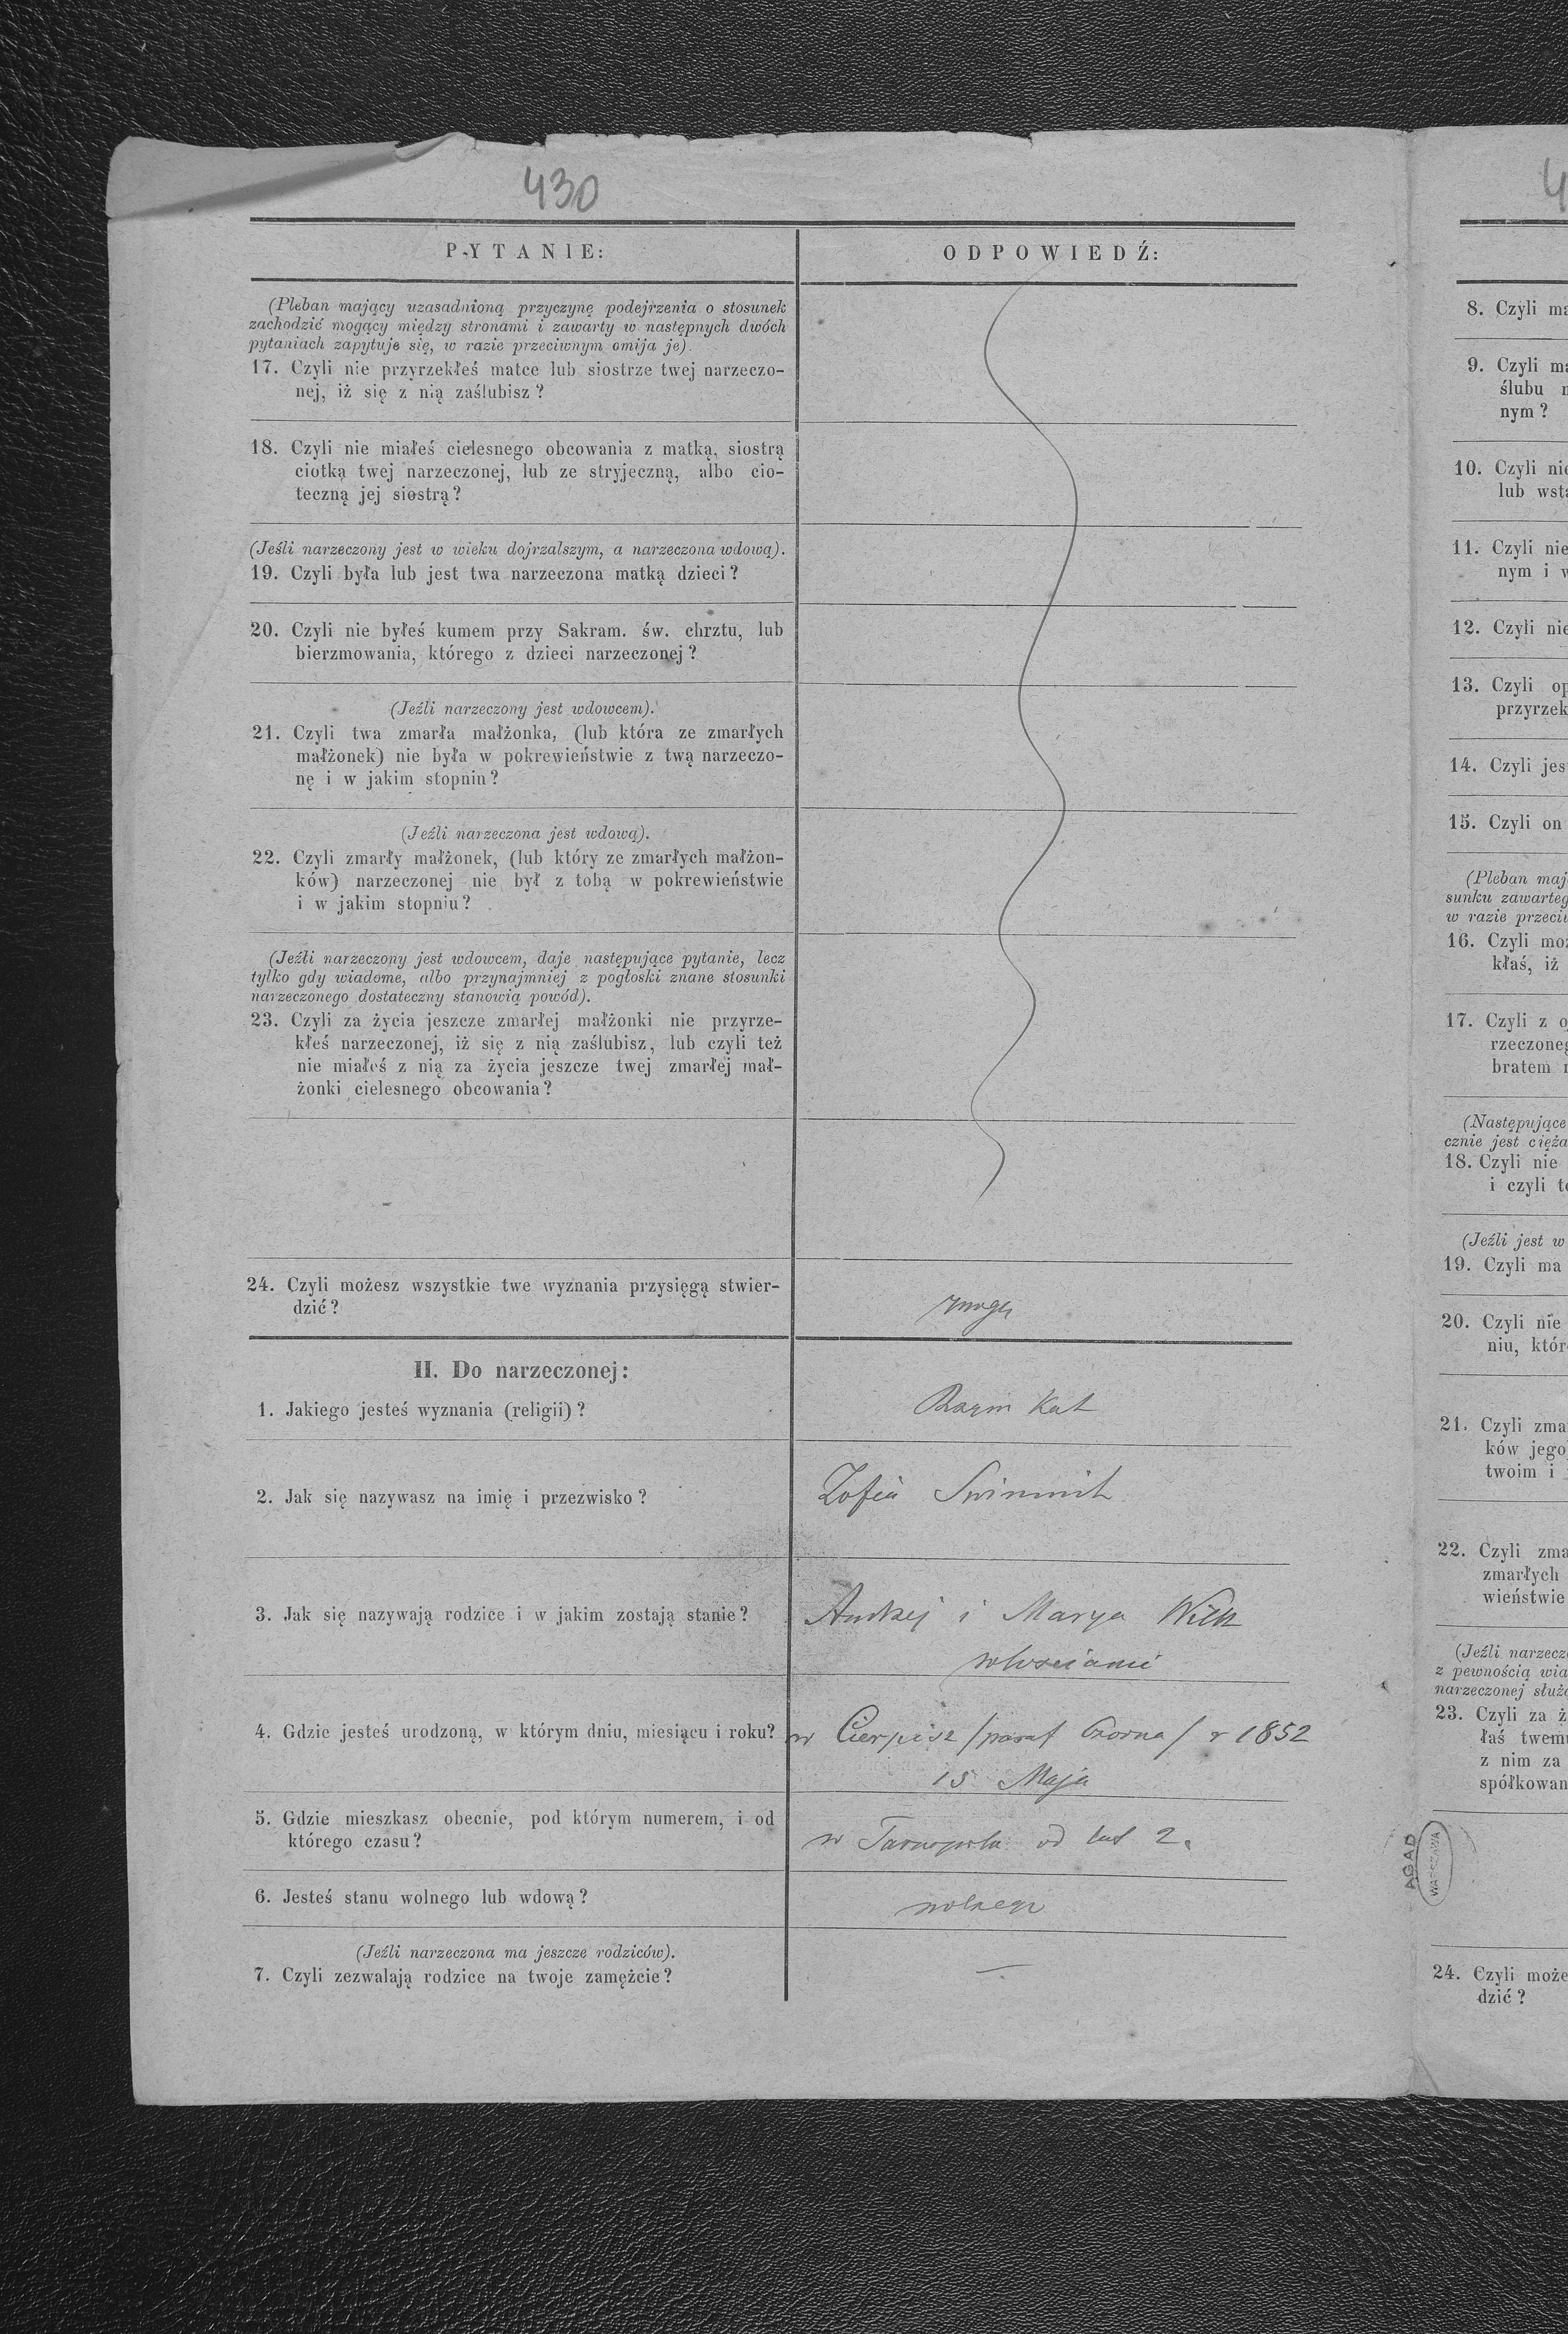 430
4
PYTANIE:
ODPOWIEDŹ:
(Pleban mający uzasadnioną przyczynę podejrzenia o stosunek
zachodzić mogący między stronami i zawarty w następnych dwóch
pytaniach zapytuje się, w razie przeciwnym omija je).
17. Czyli nie przyrzekłeś matce lub siostrze twej narzeczo-
nej, iż się z nią zaślubisz?
18. Czyli nie miałeś cielesnego obcowania z matką, siostrą
ciotką twej narzeczonej, lub ze stryjeczną, albo cio-
teczną jej siostrą?
(Jeśli narzeczony jest w wieku dojrzalszym, a narzeczona wdową).
19. Czyli była lub jest twa narzeczona matką dzieci?
20. Czyli nie byłeś kumem przy Sakram. św. chrztu, lub
bierzmowania, którego z dzieci narzeczonej?
(Jeźli narzeczony jest wdowcem).
21. Czyli twa zmarła małżonka, (lub która ze zmarłych
małżonek) nie była w pokrewieństwie z twą narzeczo-
nę i w jakim stopniu?
(Jeźli narzeczona jest wdową).
22. Czyli zmarły małżonek, (lub który ze zmarłych małżon-
ków) narzeczonej nie był z tobą w pokrewieństwie
i w jakim stopniu?
(Jeźli narzeczony jest wdowcem, daje następujące pytanie, lecz
tylko gdy wiadome, albo przynajmniej z pogłoski znane stosunki
narzeczonego dostateczny stanowią powód).
23. Czyli za życia jeszcze zmarłej małżonki nie przyrze-
kłeś narzeczonej, iż się z nią zaślubisz, lub czyli też
nie miałeś z nią za życia jeszcze twej zmarłej mał-
żonki cielesnego obcowania?
24. Czyli możesz wszystkie twe wyznania przysięgą stwier-
dzić?
mogę
II. Do narzeczonej:
1. Jakiego jesteś wyznania (religii)?
Rzym Kat
2. Jak się nazywasz na imię i przezwisko?
Zofia
3. Jak się nazywają rodzice i w jakim zostają stanie?
Andrzej i Marya Wilk
włościanie
4. Gdzie jesteś urodzoną, w którym dniu, miesiącu i roku?
w Cierpisz /paraf Czorna/ r 1852
15 Maja
5. Gdzie mieszkasz obecnie, pod którym numerem, i od
którego czasu?
w Tarnopolu od lat 2.
6. Jesteś stanu wolnego lub wdową?
wolnego
(Jeźli narzeczona ma jeszcze rodziców).
7. Czyli zezwalają rodzice na twoje zamężcie?
—
8. Czyli ma
9. Czyli ma
ślubu
nym?
10. Czyli nie
lub wsta
11. Czyli nie
nym i w
12. Czyli nie
13. Czyli op
przyrzek
14. Czyli jes
15. Czyli on
(Pleban maj
sunku zawarteg
w razie przeciw
16. Czyli moż
kłaś, iż
17. Czyli z o
rzeczoneg
bratem
(Następujące
cznie jest cięża
18. Czyli nie
i czyli te
(Jeźli jest w
19. Czyli ma
20. Czyli nie
niu, któr
21. Czyli zma
ków jego
twoim i
22. Czyli zma
zmarłych
wieństwie
(Jeźli narzecz
z pewnością wia
narzeczonej służ
23. Czyli za ż
łaś twemu
z nim za
spółkowan
AGAD
WARSZAWA
24. Czyli może
dzić?